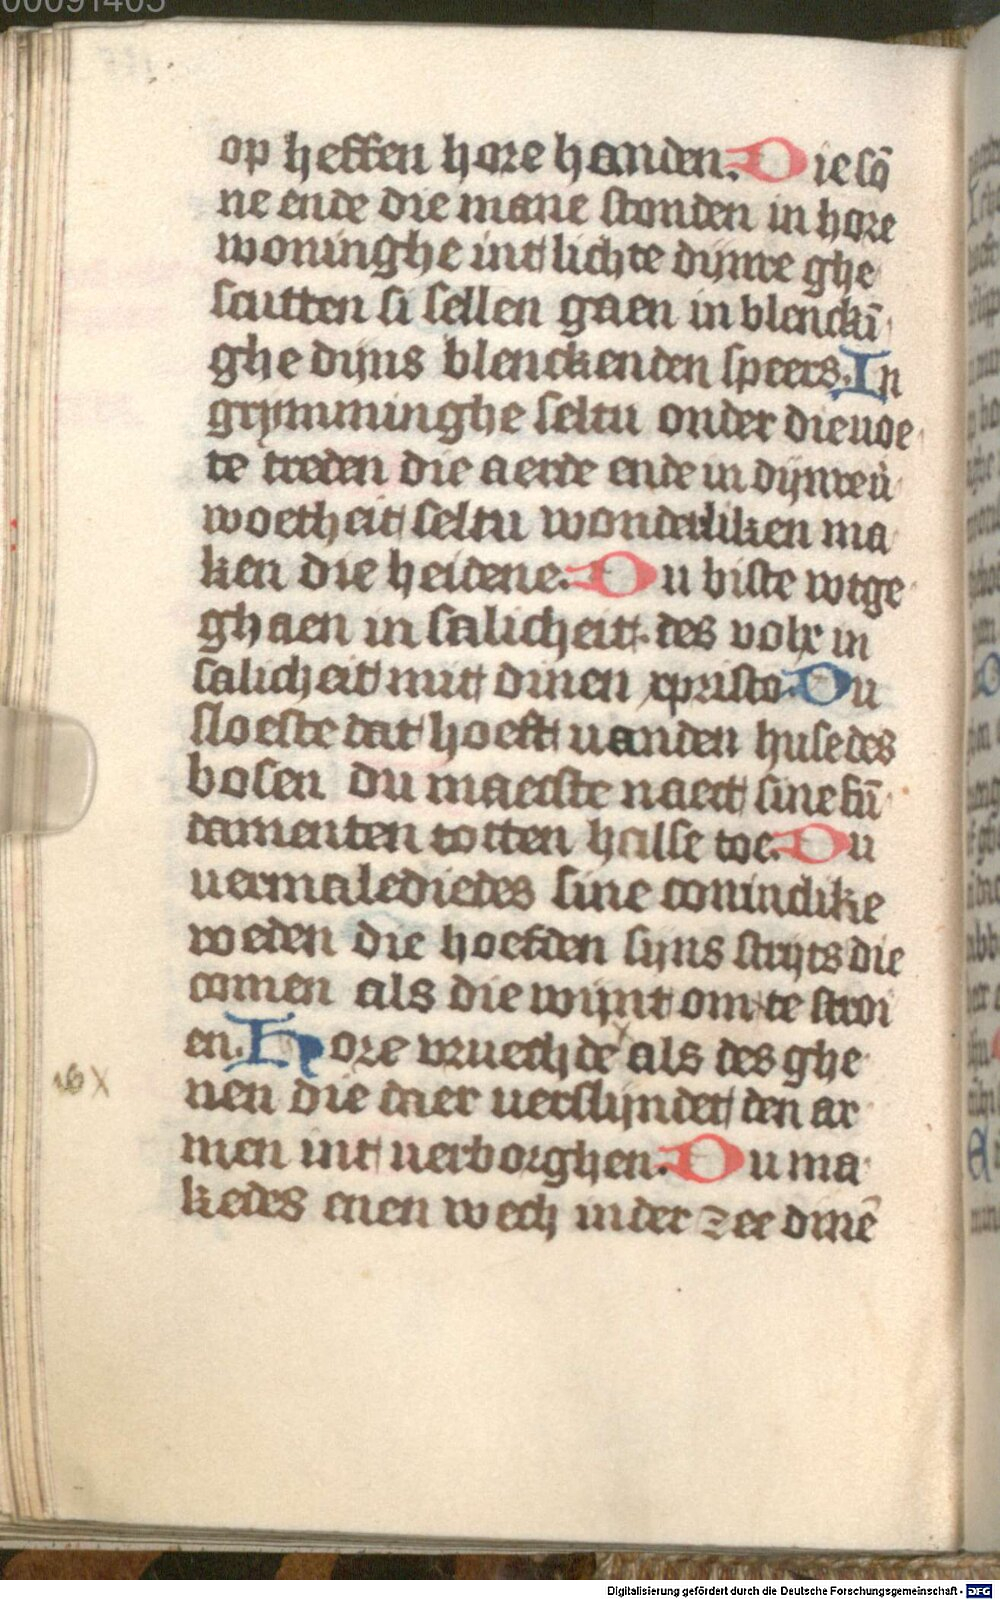 00091405
op heffen hore handen. Die sō
ne ende die mane stonden in hore
woninghe int lichte dijnre ghe
scutten si sellen gaen in blenckī
ghe dijns blenckenden speers. In
grymminghe seltu onder die uoe
te treden die aerde ende in dijnre ū
woetheit seltu wonderliken ma
ken die heidene. Du biste wtge
ghaen in salicheit des volx in
salicheit mit dinen xpristo. Du
sloeste dat hoeft uanden huse des
bosen du maecste naect sine fū
damenten totten halse toe. Du
uermalediedes sine conincklike
weden die hoefden sijns strijts die
comen als die wijnt om te stroi
en. Hore vruechde als des ghe
nen die daer uerslijndet den ar
men int uerborghen. Du ma
kedes enen wech inder zee dinē
Digitalisierung gefördert durch die Deutsche Forschungsgemeinschaft - DFG